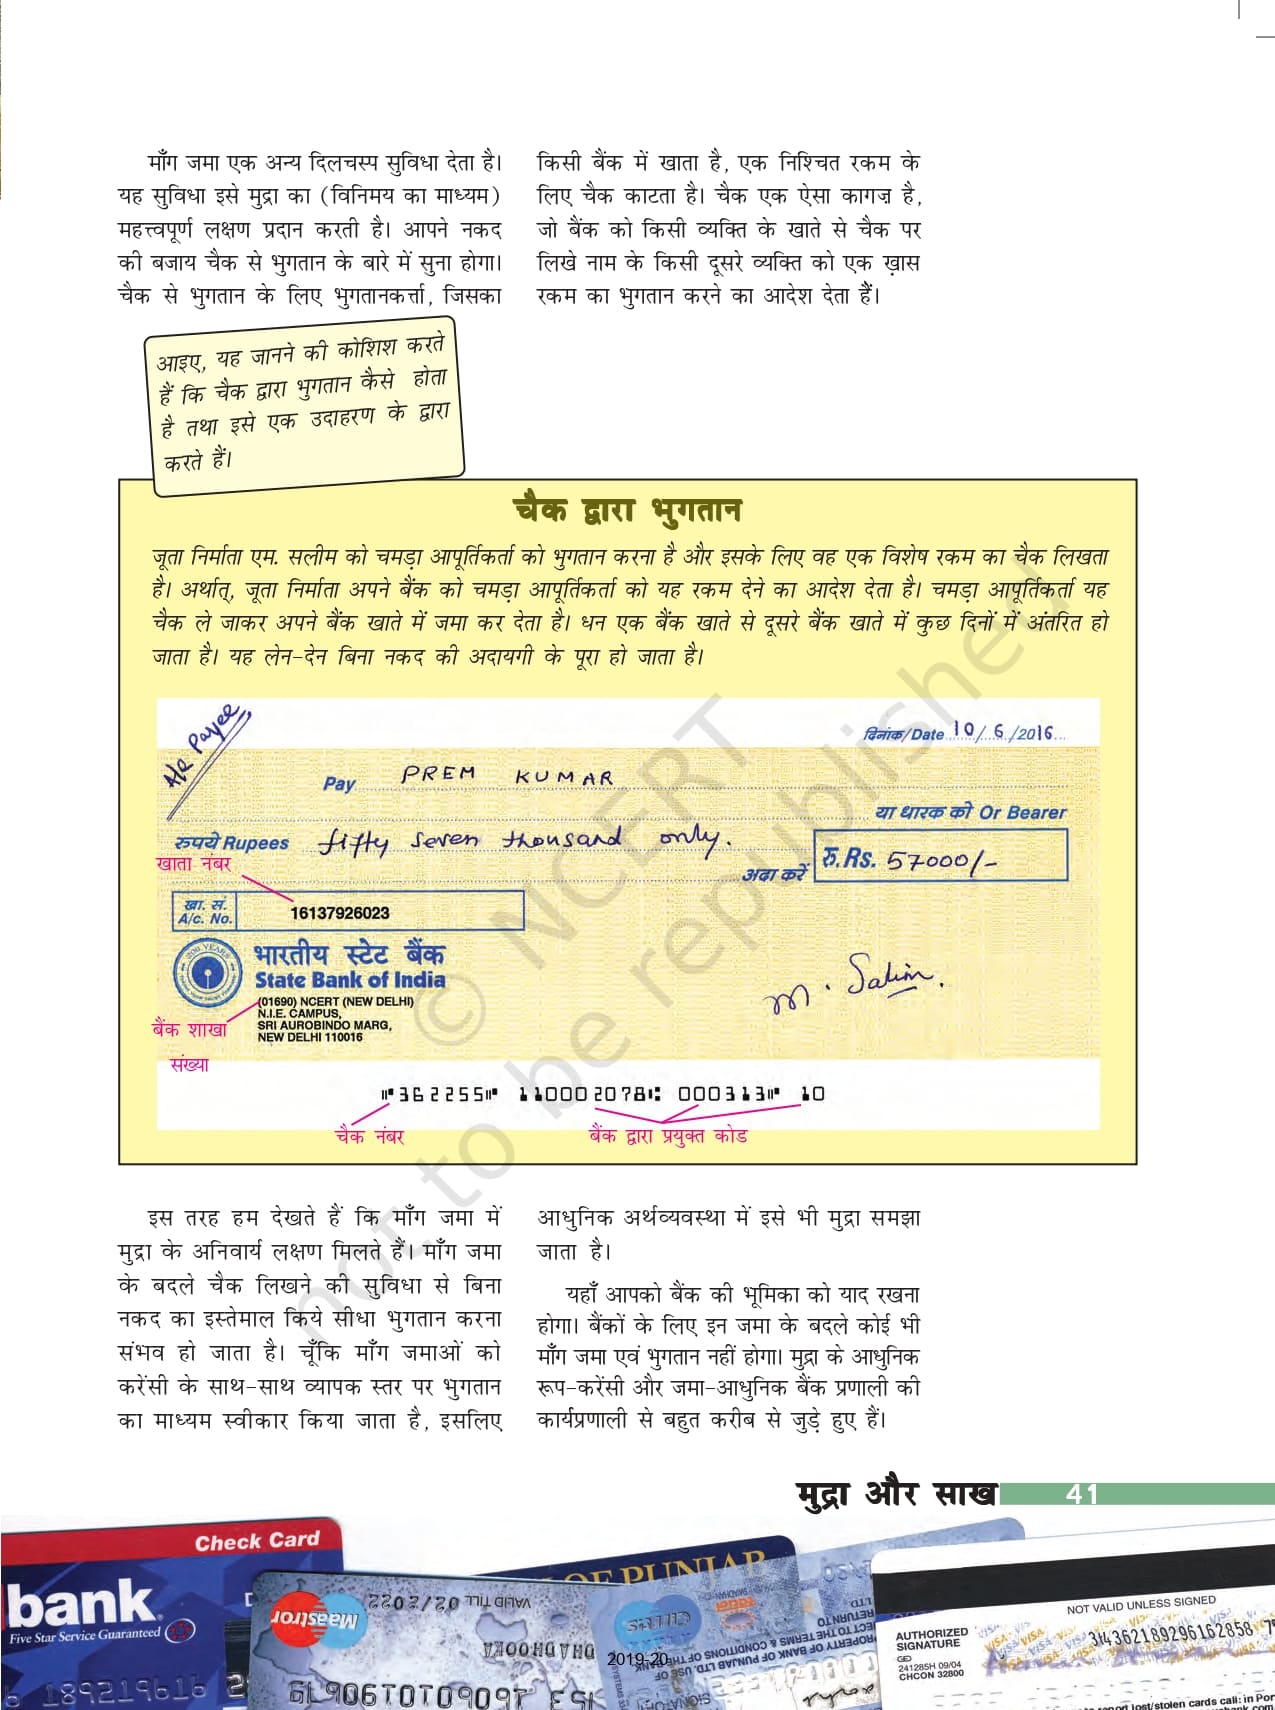 माँग जमा एक अन्य दिलचस्प सुविधा देता है।
यह सुविधा इसे मुद्रा का (विनिमय का माध्यम)
महत्त्वपूर्ण लक्षण प्रदान करती है। आपने नकद
की बजाय चैक से भुगतान के बारे में सुना होगा।
चैक से भुगतान के लिए भुगतानकर्त्ता, जिसका
किसी बैंक में खाता है, एक निश्चित रकम के
लिए चैक काटता है। चैक एक ऐसा कागज़ है,
जो बैंक को किसी व्यक्ति के खाते से चैक पर
लिखे नाम के किसी दूसरे व्यक्ति को एक ख़ास
रकम का भुगतान करने का आदेश देता हैं।
आइए, यह जानने की कोशिश करते
हैं कि चैक द्वारा भुगतान कैसे होता
है तथा इसे एक उदाहरण के द्वारा
करते हैं।
चैक द्वारा भुगतान
जूता निर्माता एम. सलीम को चमड़ा आपूर्तिकर्ता को भुगतान करना है और इसके लिए वह एक विशेष रकम का चैक लिखता
है। अर्थात्, जूता निर्माता अपने बैंक को चमड़ा आपूर्तिकर्ता को यह रकम देने का आदेश देता है। चमड़ा आपूर्तिकर्ता यह
चैक ले जाकर अपने बैंक खाते में जमा कर देता है। धन एक बैंक खाते से दूसरे बैंक खाते में कुछ दिनों में अंतरित हो
जाता है। यह लेन-देन बिना नकद की अदायगी के पूरा हो जाता है।
A/c Payee
दिनांक/Date 10/6/2016
Pay PREM KUMAR
या धारक को Or Bearer
रुपये Rupees fifty seven thousand only.
अदा करें रु.Rs. 57000/-
खाता नंबर
खा. सं.
A/c. No. 16137926023
200 YEARS
भारतीय स्टेट बैंक
State Bank of India
(01690) NCERT (NEW DELHI)
N.I.E. CAMPUS,
SRI AUROBINDO MARG,
NEW DELHI 110016
M. Salim.
बैंक शाखा
संख्या
⑈362255⑈ 110002078⑆ 000313⑈ 10
चैक नंबर
बैंक द्वारा प्रयुक्त कोड
© NCERT
not to be republished
इस तरह हम देखते हैं कि माँग जमा में
मुद्रा के अनिवार्य लक्षण मिलते हैं। माँग जमा
के बदले चैक लिखने की सुविधा से बिना
नकद का इस्तेमाल किये सीधा भुगतान करना
संभव हो जाता है। चूँकि माँग जमाओं को
करेंसी के साथ-साथ व्यापक स्तर पर भुगतान
का माध्यम स्वीकार किया जाता है, इसलिए
आधुनिक अर्थव्यवस्था में इसे भी मुद्रा समझा
जाता है।
यहाँ आपको बैंक की भूमिका को याद रखना
होगा। बैंकों के लिए इन जमा के बदले कोई भी
माँग जमा एवं भुगतान नहीं होगा। मुद्रा के आधुनिक
रूप-करेंसी और जमा-आधुनिक बैंक प्रणाली की
कार्यप्रणाली से बहुत करीब से जुड़े हुए हैं।
मुद्रा और साख 41
Check Card
bank
Five Star Service Guaranteed
189219616
Maestro
VALID TILL 02/2022
OF PUNJAB
CIRRUS
RETURN TO
PROPERTY OF BANK OF PUNJAB LTD. USE OF
NOT VALID UNLESS SIGNED
AUTHORIZED
SIGNATURE
241285H 09/04
CHCON 32800
VISA
lost/stolen cards call: in
2019-20